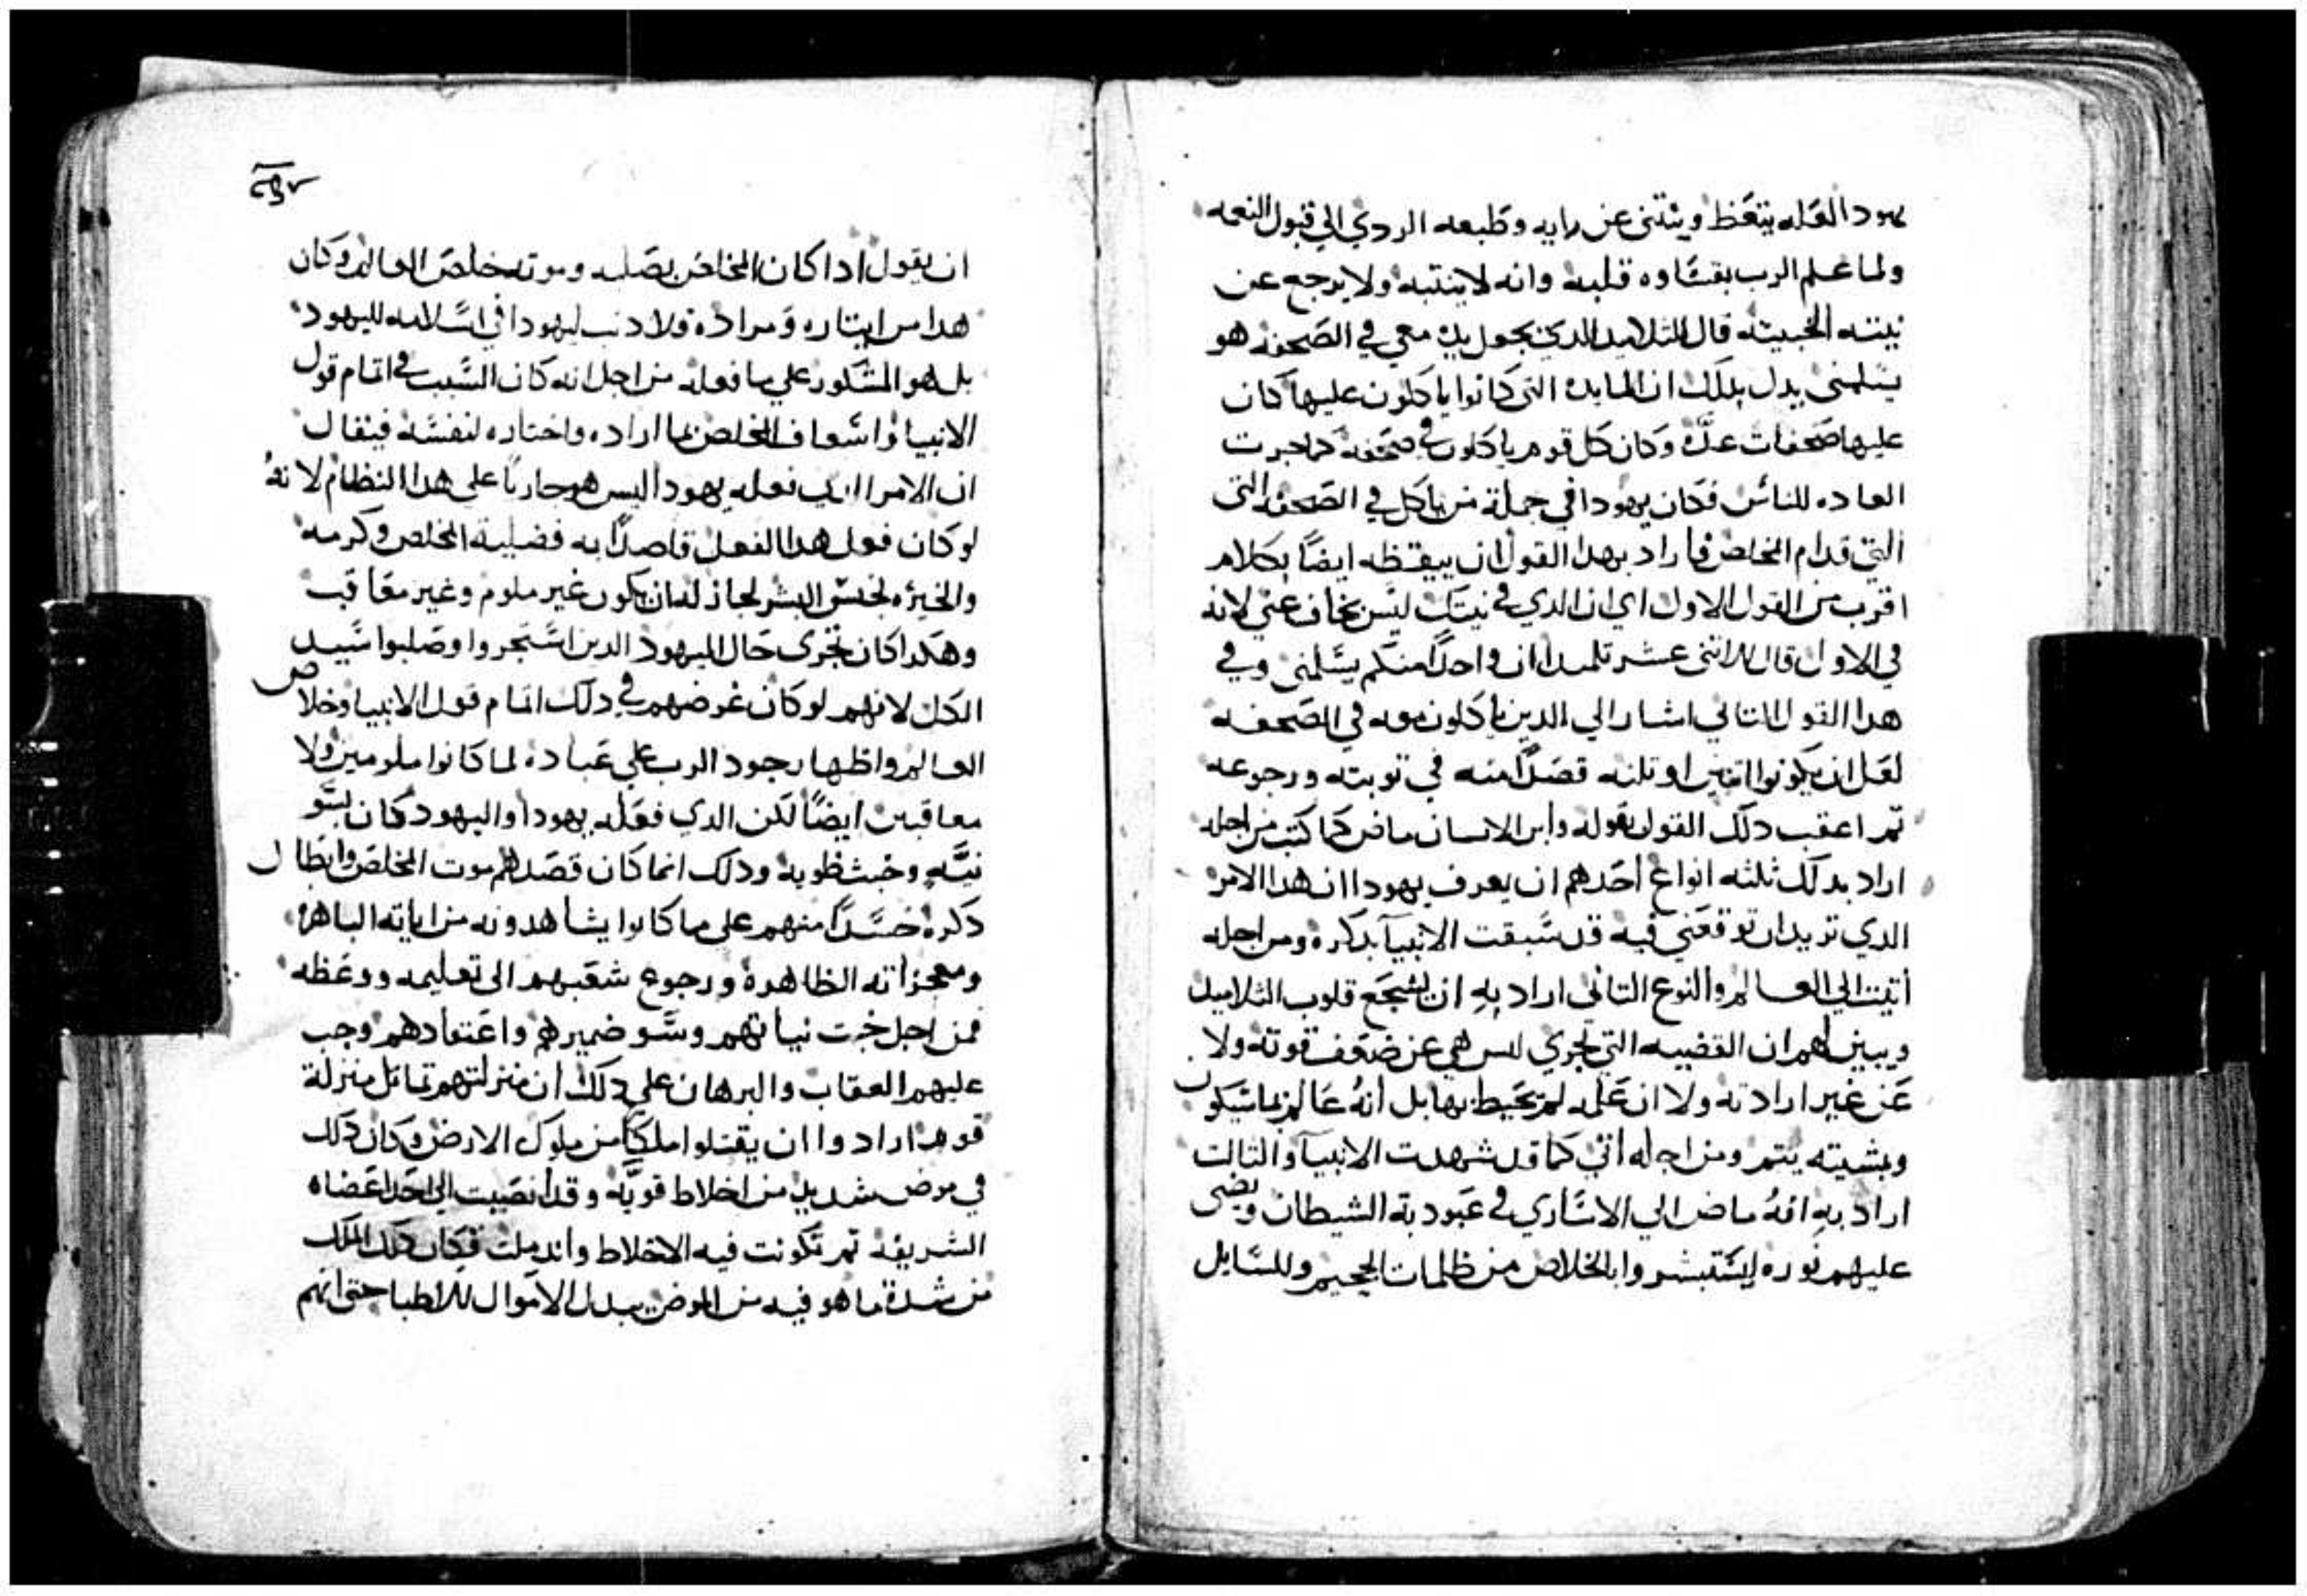 يهودا لعله يتعظ وينتني عن رايه وطبعه الردي الي قبول النعمه
ولما علم الرب بقساوه قلبه وانه لا ينتبه ولا يرجع عن
نيته الخبيته قال للتلاميد الدي يجعل يده معي في الصحفه هو
يسلمني يدل بدلك ان المايده التي كانوا ياكلون عليها كان
عليها صحفات عده وكان كل قوم ياكلون في صحفه كما جرت
العاده للناس فكان يهودا في جملة من ياكل في الصحفه التي
التي قدام المخلص فاراد بهدا القول ان ييقظه ايضًا بكلام
اقرب من القول الاول اي ان الدي في نيتك ليس بخاف عني لانه
في الاول قال للاتني عشر تلميدا ان واحدًا منكم يسلمني وفي
هدا القول التاني اشار الي الدين ياكلون معه في الصحفه
لعل ان يكونوا اتنين او تلته قصدًا منه في توبته ورجوعه
تم اعقب دلك القول بقوله وابن الانسان ماض كما كتب من اجله
اراد بدلك ثلثه انواع احدهم ان يعرف يهودا ان هدا الامر
الدي تريد ان توقعني فيه قد سبقت الانبيآ بدكره ومن اجله
اتيت الي العالم والنوع التاني اراد به ان يشجع قلوب التلاميد
ويبين لهم ان القضيه التي تجري ليس هي عن ضعف قوته ولا
عن غير ارادته ولا ان علمه لم يحيط بها بل انهُ عالم بما سيكون
وبمشيته يتم ومن اجله اتي كما قد شهدت الانبيآ والتالت
اراد به انهُ ماض الي الاساري في عبودية الشيطان ويضي
عليهم نوره ليستبشروا بالخلاص من ظلمات الجحيم وللسايل
ان يقول ادا كان المخلص بصلبه وموته خلص العالم وكان
هدا من ايتاره ومراده فلا دنب ليهودا في اسلامه لليهود
بل هو المشكور علي ما فعله من اجل انه كان السبب في اتمام قول
الانبيا واسعاف المخلص بما اراده واختاره لنفسه فيقال
ان الامر الدي فعله يهودا ليس هو جاريًا علي هدا النظام لانهُ
لو كان فعل هدا الفعل قاصدًا به فضيلة المخلص وكرمه
والخيره لجنس البشر لجاز له ان يكون غير ملوم وغير معاقب
وهكدا كان تجري حال اليهود الدين استجروا وصلبوا سيد
الكل لانهم لو كان غرضهم في دلك اتمام قول الانبيا وخلاص
العالم واظهار جود الرب علي عباده لما كانوا ملومين ولا
معاقبين ايضًا لكن الدي فعله يهودا واليهود كان بسو
نيَّه وخبث طويه ودلك انما كان قصدهم موت المخلص وابطال
دكره حسدًا منهم علي ما كانوا يشاهدونه من اياته الباهره
ومعجزاته الظاهرة ورجوع شعبهم الي تعليمه ووعظه
فمن اجل خبت نياتهم وسو ضميرهم واعتقادهم وجب
عليهم العقاب والبرهان علي دلك ان منزلتهم تماتل منزلة
قوم ارادوا ان يقتلوا ملكًا من ملوك الارض وكان دلك
في مرض شديد من اخلاط قويَّه وقد انصبت الي احد اعضاه
الشريفه تم تكونت فيه الاخلاط واندملت فكان دلك الملك
من شدة ما هو فيه من المرض يبدل الاموال للاطبا حتي انهم